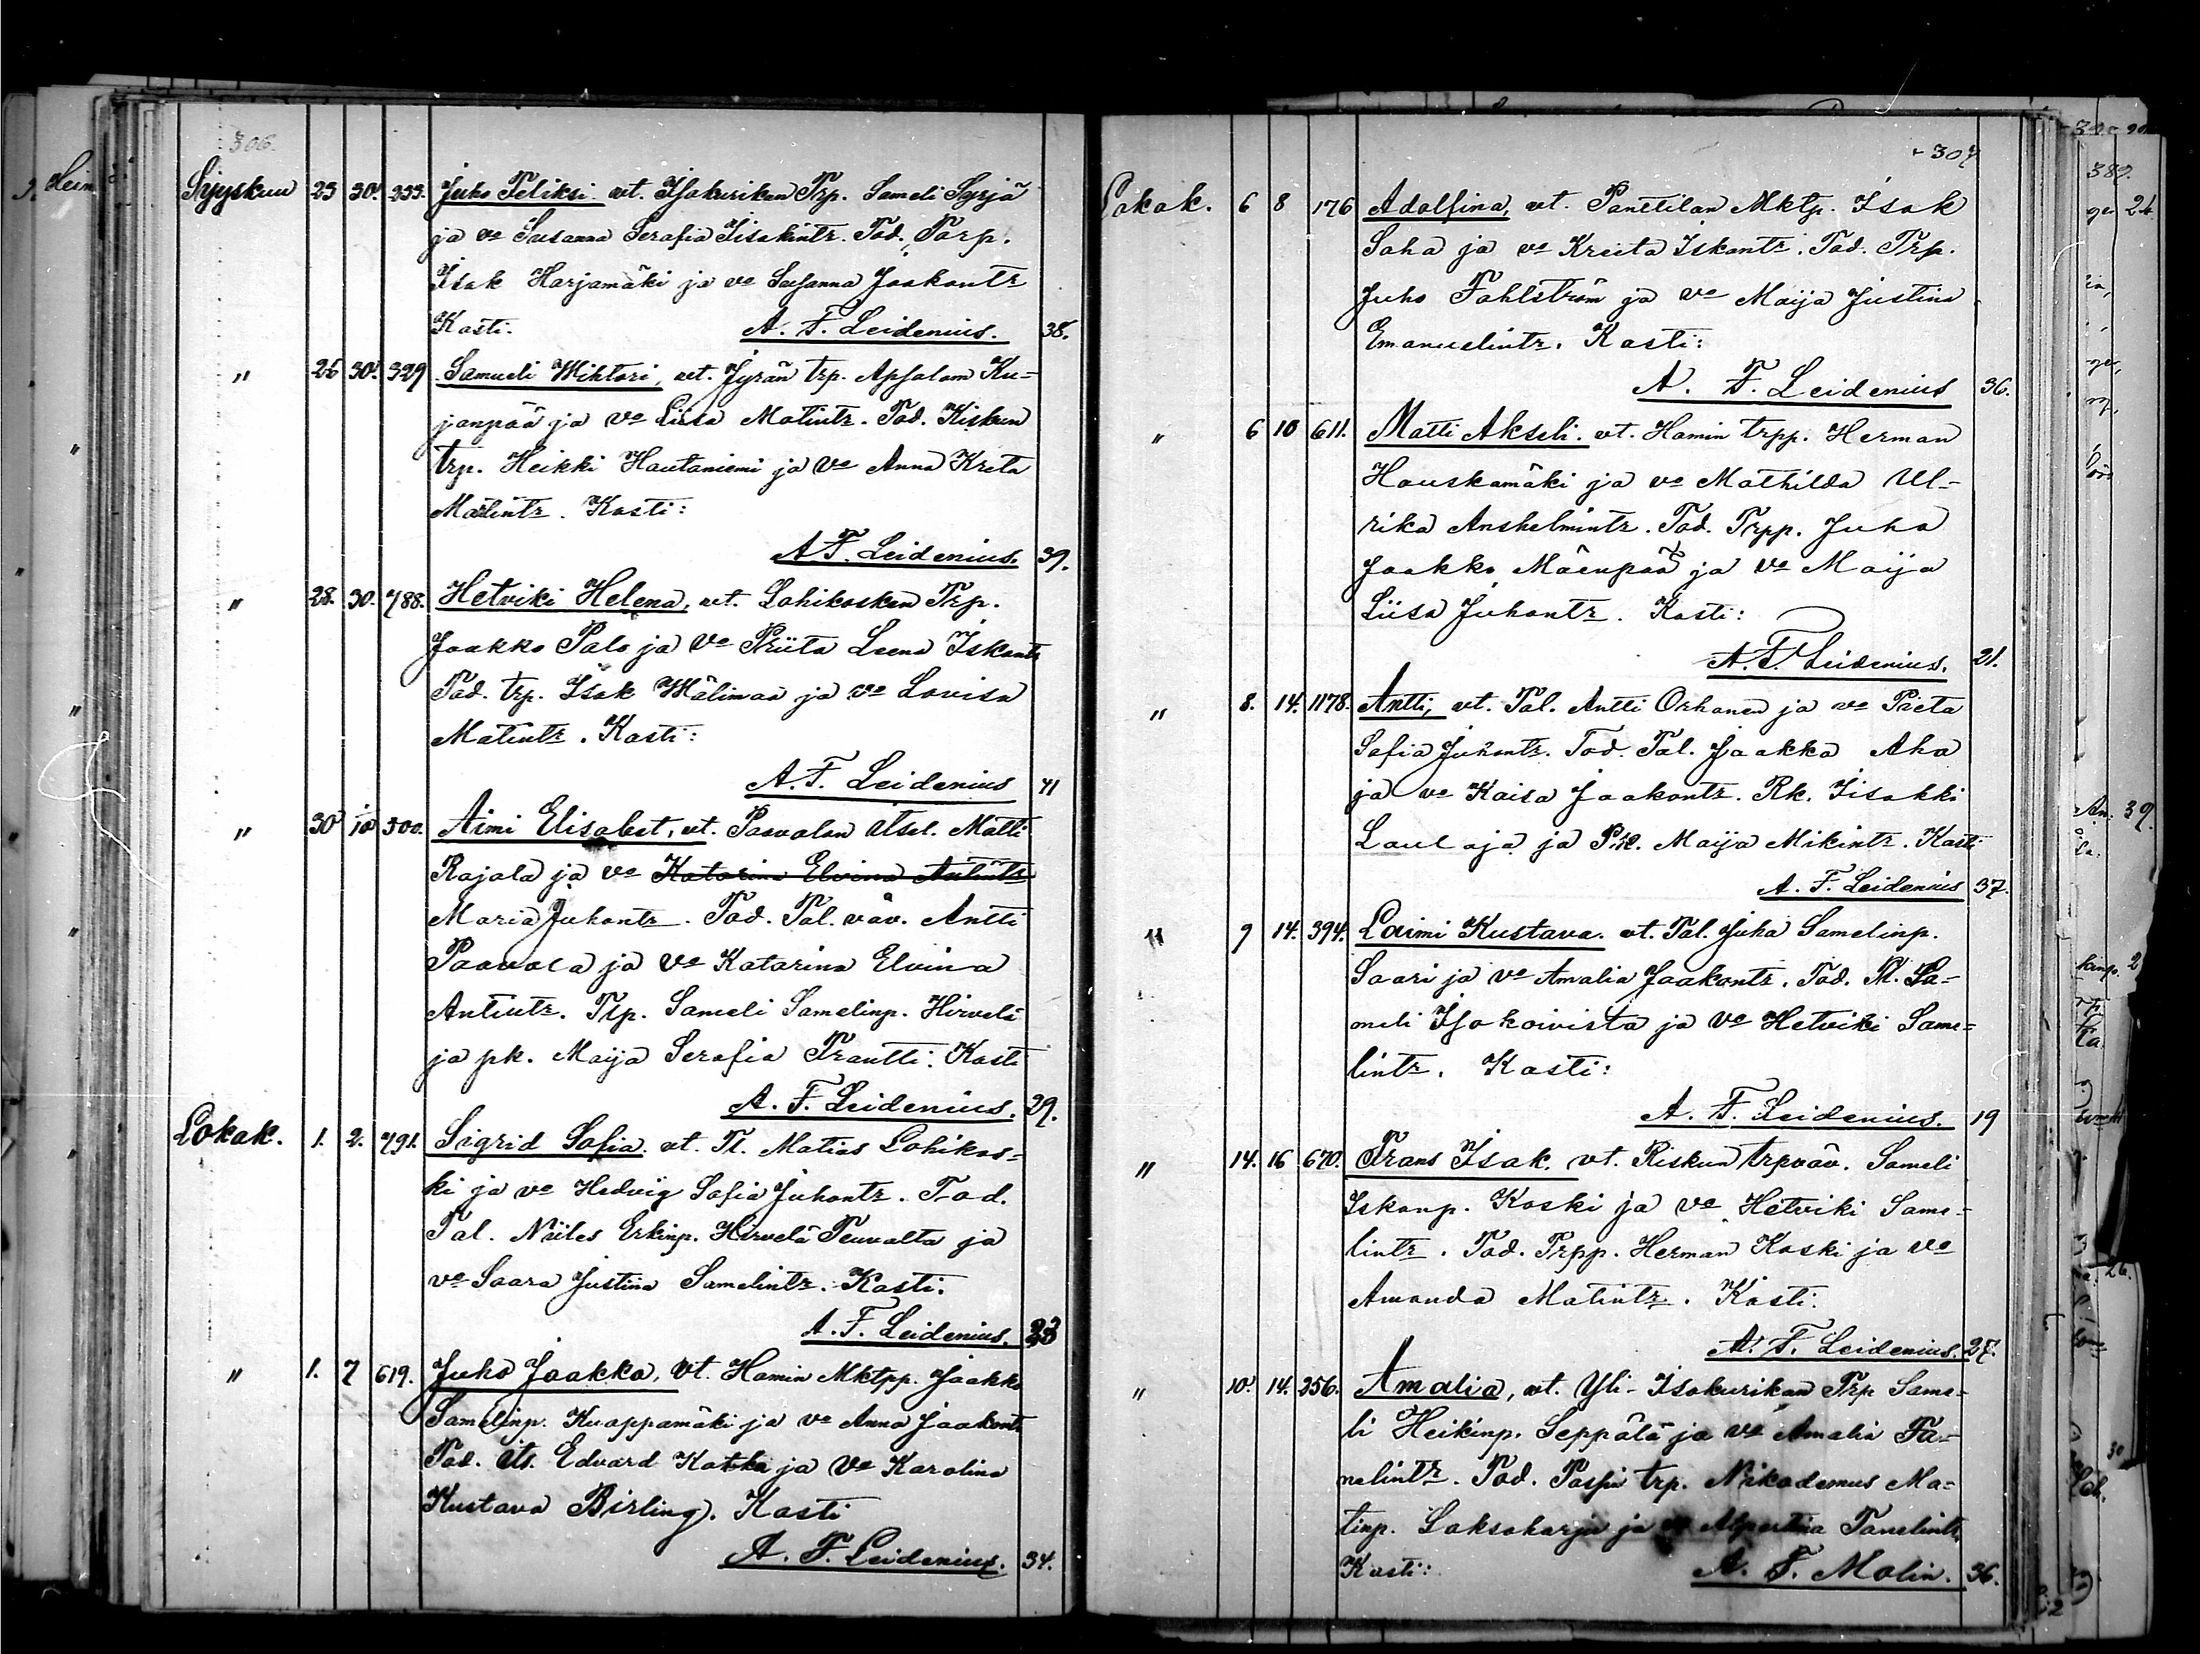 306.
Syyskuu 25 30. 253. Juho Feliksi. vt. Isokurikan Trp. Sameli Syrjä
ja vo Susanna Serafia Iisakintr. Tod. Torp.
Isak Harjamäki ja vo Susanna Jaakontr
Kasti. A. F. Leidenius. 38.
" 26 30. 329 Samueli Wihtori, vt. Jyrän trp. Apsalom Ku-
janpää ja vo Liisa Matintr. Tod. Kiskun
trp. Heikki Hautaniemi ja vo Anna Kreta
Matintr. Kasti:
A. F. Leidenius. 39.
" 28. 30. 788. Hetviki Helena, vt. Lohikosken Trp.
Jaakko Palo ja vo Priita Leena Iskontr
Tod. trp. Isak Wälimaa ja vo Lovisa
Matintr. Kasti:
A. F. Leidenius 41
" 30 10 300. Aimi Elisabet, vt. Paavolan itsel. Matti
Rajala ja vo Katarina Elvina Antintr
Maria Juhontr. Tod. Tal. väv. Antti
Paavola ja vo Katarina Elvina
Antintr. Trp. Sameli Samelinp. Hirvelä
ja pk. Maija Serafia Frantti. Kasti
A. F. Leidenius. 29.
Lokak. 1. 2. 791. Sigrid Sofia. vt. Tl. Matias Lohikos-
ki ja vo Hedvig Sofia Juhontr. Tod.
Tal. Niiles Erkinp. Hirvelä Teuvalta ja
vo Saara Justina Samelintr. Kasti.
A. F. Leidenius. 23
" 1. 7 619. Juho Jaakko, vt. Hamin Mktpp. Jaakko
Samelinp. Knappamäki ja vo Anna Jaakontr
Tod. its. Edvard Katka ja vo Karolina
Kustava Birling. Kasti
A. F. Leidenius. 34.
307
Lokak. 6 8 176 Adolfina, vt. Panttilan Mktp. Isak
Saha ja vo Kreeta Iskontr. Tod. Trp.
Juho Fahlström ja vo Maija Justina
Emanuelintr. Kasti:
A. F. Leidenius 36.
" 6 10 611. Matti Akseli. vt. Hamin trpp. Herman
Hauskamäki ja vo Mathilda Ul-
rika Anshelmintr. Tod. Trpp. Juha
Jaakko Mäenpää ja vo Maija
Liisa Juhontr. Kasti:
A. F. Leidenius. 21.
" 8. 14. 1178. Antti, vt. Tal. Antti Orhanen ja vo Pieta
Sofia Juhontr. Tod. Tal. Jaakko Aho
ja vo Kaisa Jaakontr. Rk. Iisakki
Laulaja ja Pk. Maija Mikintr. Kasti
A. F. Leidenius 37.
" 9 14. 394. Laimi Kustava. vt. Tal. Juha Samelinp.
Saari ja vo Amalia Jaakontr. Tod. Tl. Sa-
meli Isokoivista ja vo Hetviki Same-
lintr. Kasti:
A. F. Leidenius. 19
" 14. 16 670. Frans Isak. vt. Kiskun trpväv. Sameli
Iskonp. Koski ja vo Hetviki Same-
lintr. Tod. Trpp. Herman Koski ja vo
Amanda Matintr. Kasti.
A. F. Leidenius. 27.
" 10. 14. 256. Amalia, vt. Yli-Isokurikan Trp Same-
li Heikinp. Seppälä ja vo Amalia Ta-
nelintr. Tod. Paspin trp. Nikodemus Ma-
tinp. Laksoharju ja vo Alpertina Tanelintr
Kasti: A. F. Molin. 36.